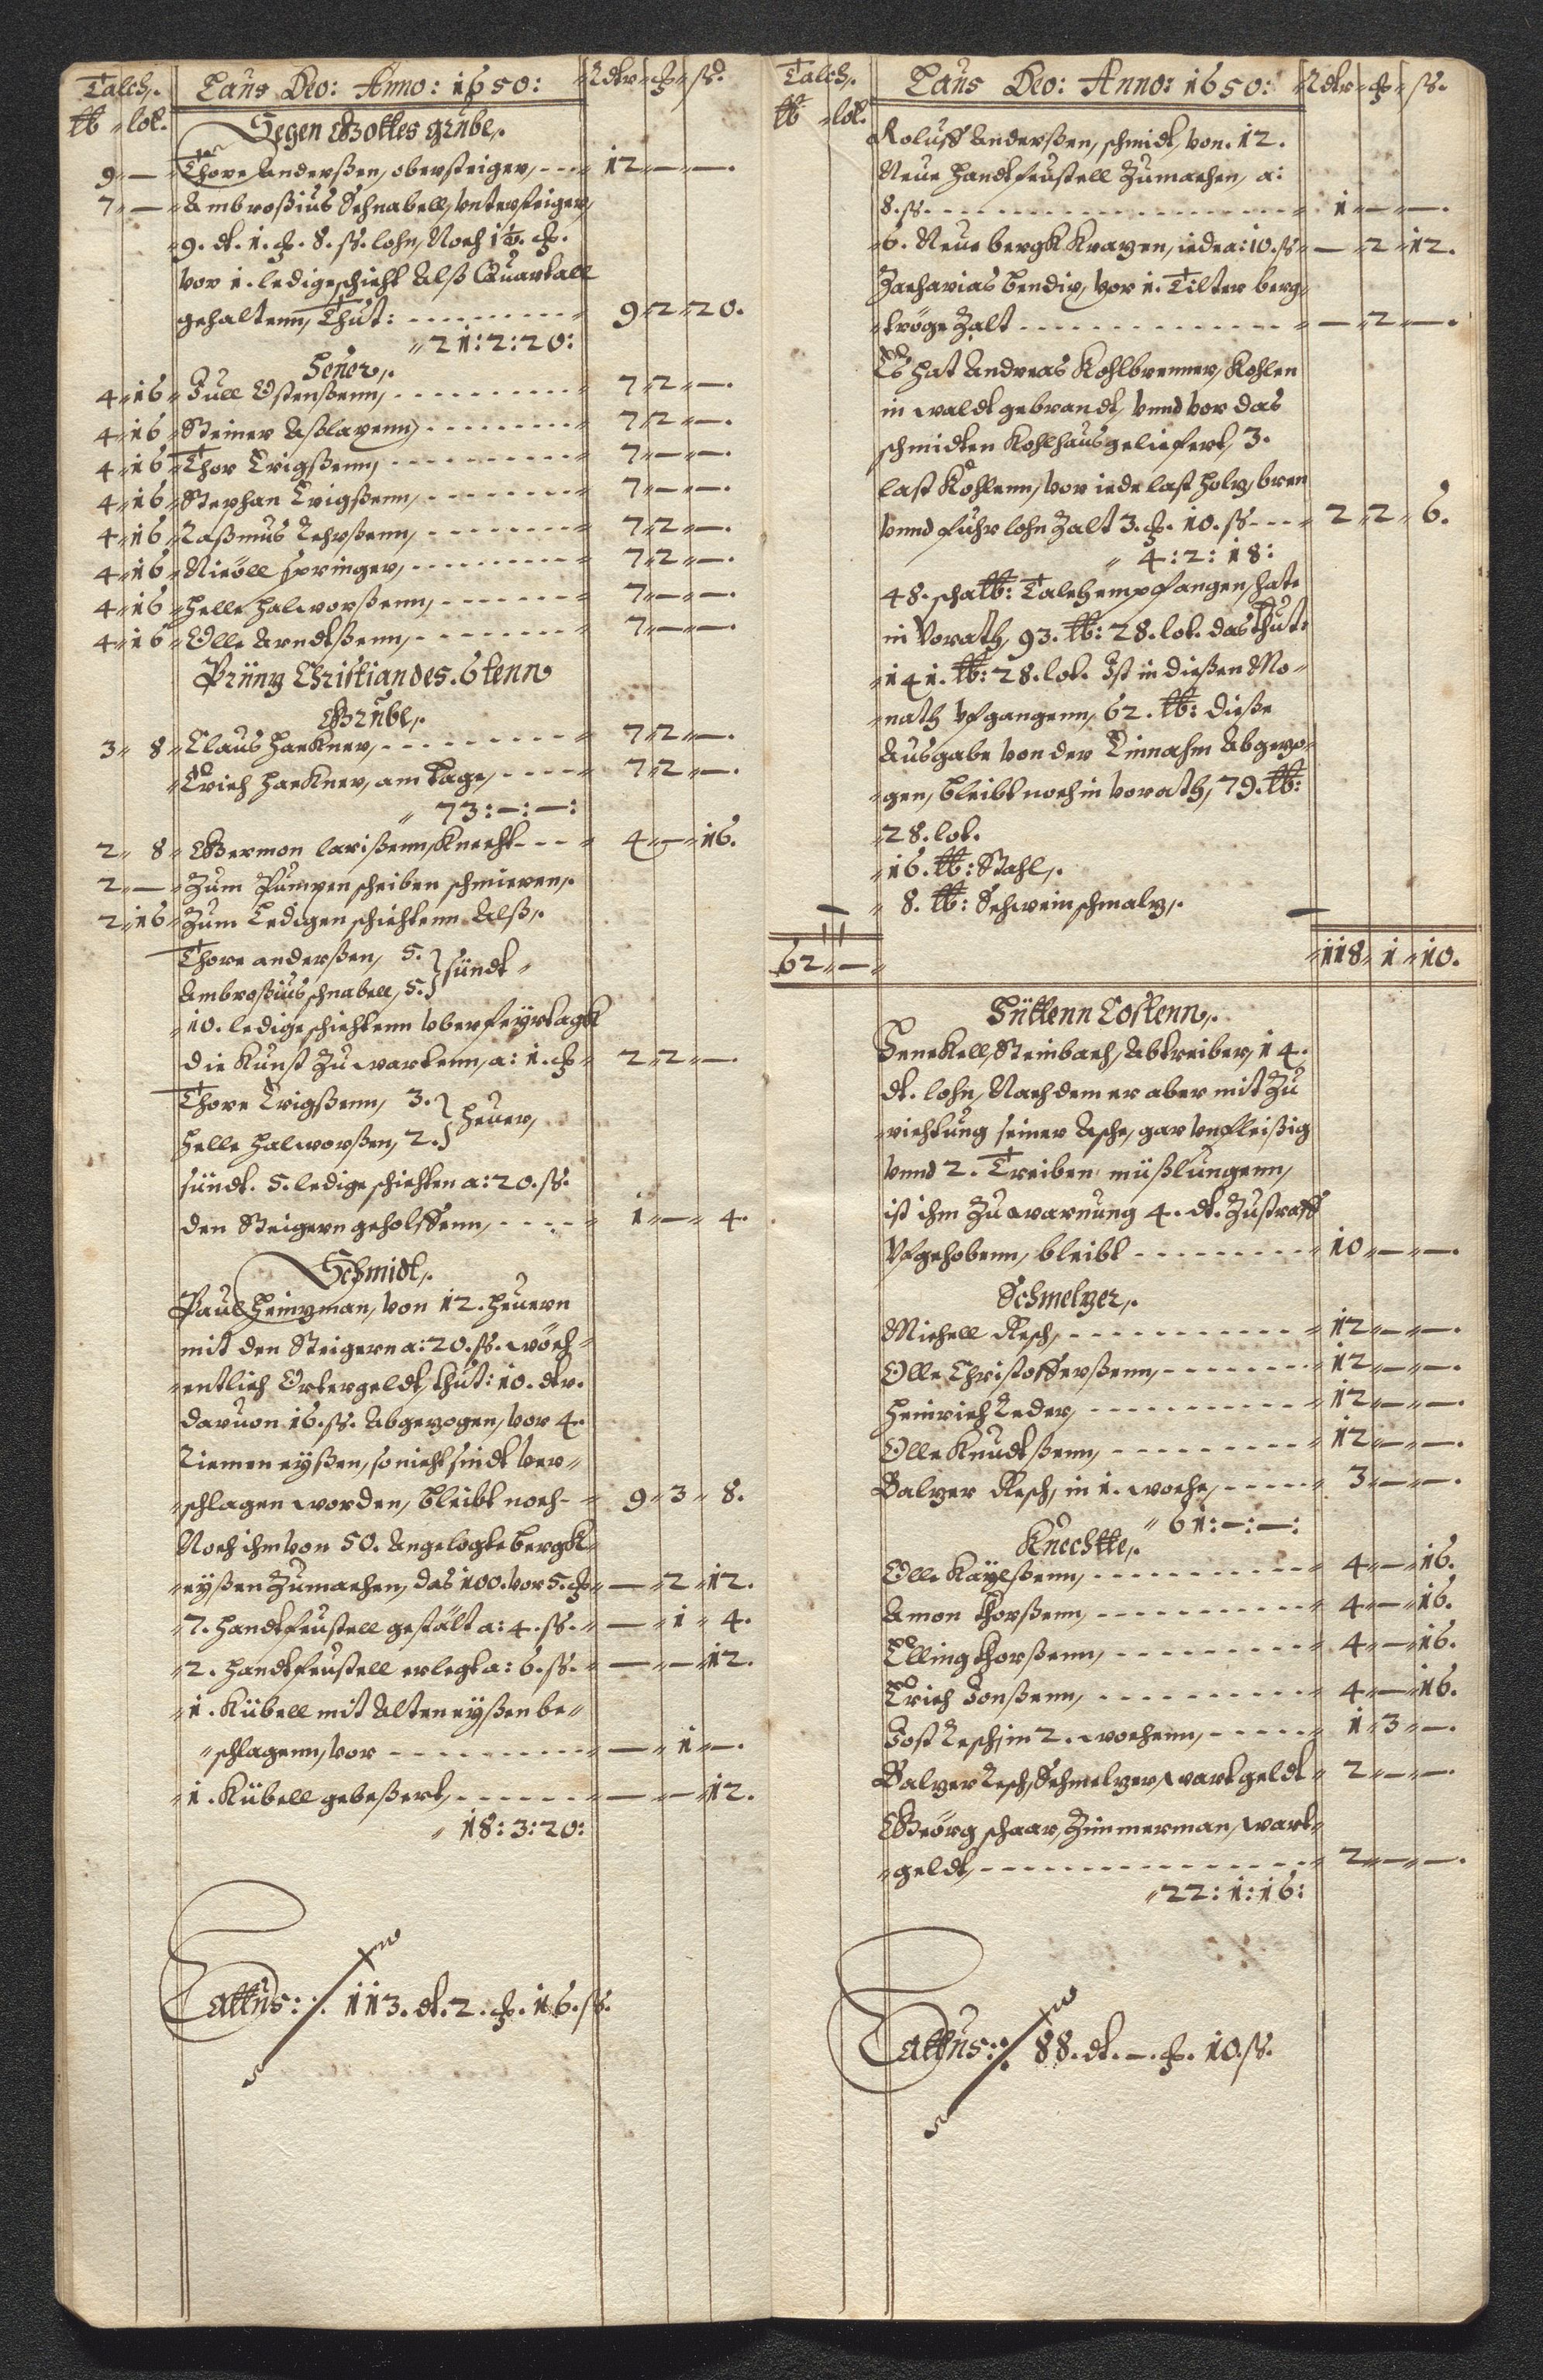 Talch.
tb lot.
Laus Deo: Anno: 1650:
Rdlr ƶ ß.
Segen Gottes grube.
9 — Thore Anderßen, obersteiger, - - - 12 — —.
7 — Ambroßius Schnabell, Untersteiger,
9. dl. 1. ƶ. 8. ß. lohn, Noch 1½. ƶ.
vor 1. ledige schicht Alß Quartall
gehaltenn, Thut: - - - 9 2 20.
21:2:20:
Heuer.
4 16 Jull Ostenßenn, - - - 7 2 —.
4 16 Steiner Aßlaxenn, - - - 7 2 —.
4 16 Thor Erigßenn, - - - 7 — —.
4 16 Stephan Erigßenn, - - - 7 — —.
4 16 Raßmus Lehrßenn, - - - 7 2 —.
4 16 Nicöll springer, - - - 7 2 —.
4 16 Helle Halworßenn, - - - 7 — —.
4 16 Olle Arndtßenn, - - - 7 — —.
Prünz Christian des. 5tenn
Grube.
3 8 Claus Hackner, - - - 7 2 —.
Erich Hackner, am Tage, - - - 7 2 —.
73:—:—:
2 8 Germon larißenn, Knecht - - - 4 — 16.
2 — Zum Pumpen scheiben schmieren.
2 16 Zum Ledigen schichtenn Alß.
Thore anderßen, 5.
Ambroßius schnabell, 5. } sündt
10. ledige schichtenn ober feyrtagk
die Kunst zu wartenn, a: 1. ƶ 2 2 —.
Thore Erigßenn, 3.
Helle Halworßen, 2. } Heuer,
sündt. 5. ledige schichten a: 20. ß.
den Steigern geholffenn, - - - 1 — 4.
Schmidt.
Paul Heinzman, von 12. Heuern
mit den Steigern a: 20. ß. wöch
entlich Ortergeldt, thut: 10. dlr.
daruon 16. ß. Abgezogen, vor 4.
Riemen eyßen, so nicht sindt ver
schlagen worden, bleibt noch - 9 3 8.
Noch ihm von 50. Angelegte bergk
eyßen zumachen, das 100. vor 5. ƶ — 2 12.
7. handtfeustell gestält a: 4. ß. — 1 4.
2. handtfeustell erlegt a: 6. ß. — — 12.
1. Kübell mit Alten eyßen be
schlagenn, vor - - - — 1 —.
1. Kübell gebeßert, - - - — — 12.
18:3:20:
Lattus: 113. dl. 2. ƶ. 16. ß.
Talch.
tb lot.
Laus Deo: Anno: 1650:
Rdlr ƶ ß.
Roluff Anderßen, schmidt, von. 12.
Neue handtfeustell zumachen, a:
8. ß. - - - 1 — —.
6. Neue bergk Krazen, iede a: 10. ß — 2 12.
Zacharias bendix, vor 1. Tilter berg
tröge Zalt - - - — 2 —.
Es hat Andreas Kohlbrenner, Kohlen
in waldt gebrandt, vnnd vor das
schmidten Kohlhaus geliefert, 3.
last Kohlenn, vor iede last holz, bren
vnnd fuhr lohn Zalt 3. ƶ. 10. ß - - - 2 2 6.
4:2:18:
48. schatb: Talch empfangen, hate
in Vorath, 93. tb: 28. lot. das thut:
141. tb: 28. lot. Ist in dießen Mo
nath vfgangenn, 62. tb: dieße
Ausgabe von der Einnahm Abgezo
gen, bleibt noch in vorath, 79. tb:
28. lot.
16. tb: Stahl.
8. tb: Schweinschmalz.
62 — 118 1 10.
Hüttenn Costenn.
Henckell, Steinbach, Abtreiber, 14.
dl. lohn, Nach dem er aber mit Zu
richtung seiner Asche, gar vnfleißig
vnnd 2. Treiben müßlungenn,
ist ihm zu warnung 4. dl. Zustraff
vfgehobenn, bleibt - - - 10 — —.
Schmelzer.
Michell Resch, - - - 12 — —.
Olle Christofferßenn, - - - 12 — —.
Heinrich Leder, - - - 12 — —.
Olle Knudtßenn, - - - 12 — —.
Balzer Resch, in 1. woche, - - - 3 — —.
61:—:—:
Knechtte.
Olle Kaylßenn, - - - 4 — 16.
Amon thorßenn, - - - 4 — 16.
Elling thorßenn, - - - 4 — 16.
Erich Jonßenn, - - - 4 — 16.
Jost Resch, in 2. wochenn, - - - 1 3 —.
Balzer Resch, Schmelzer, wartgeldt 2 — —.
Geörg schaar, Zimmerman, wart
geldt, - - - 2 — —.
22:1:16:
Lattus: 88. dl. —. ƶ. 10. ß.